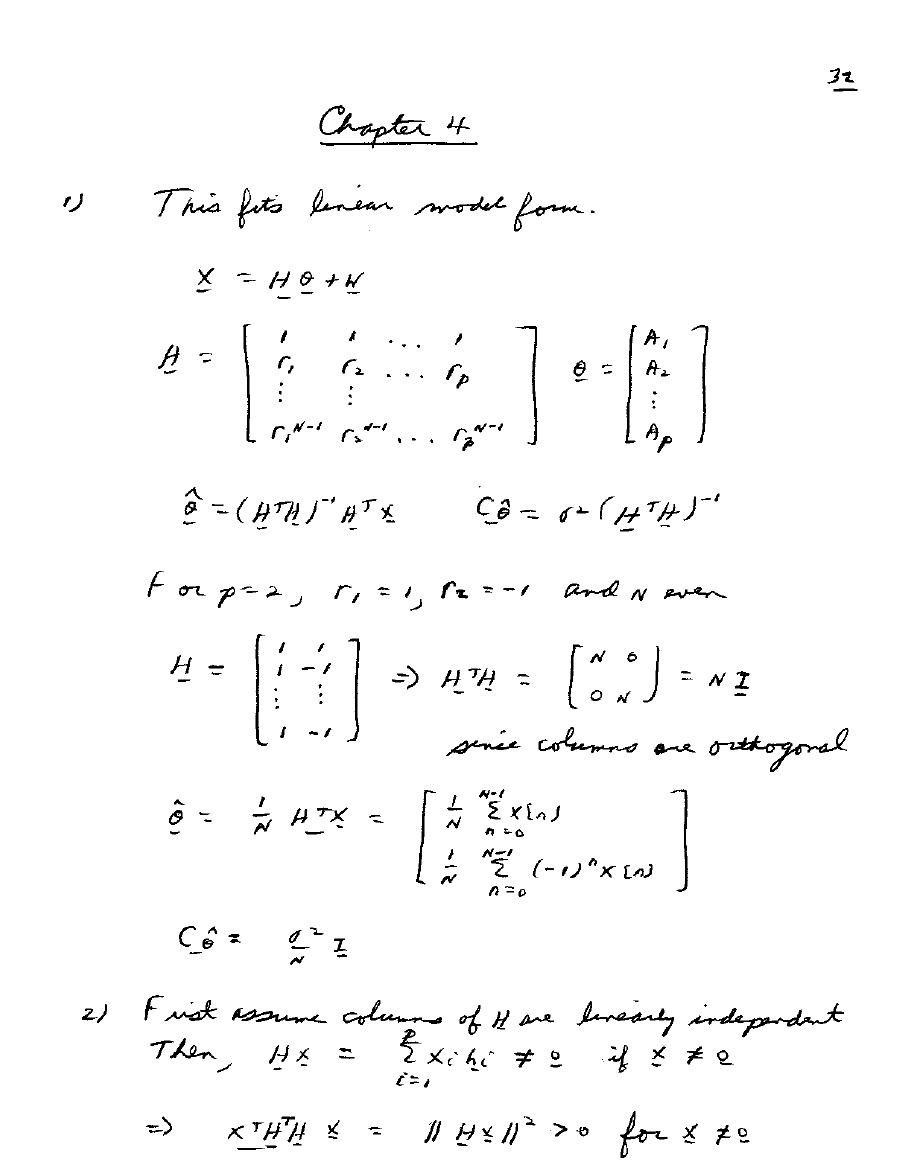 32
Chapter 4
1) This fits linear model form.
X = H θ + W
H = [ 1 1 ... 1 ; r₁ r₂ ... rₚ ; ⋮ ⋮ ; r₁ᴺ⁻¹ r₂ᴺ⁻¹ ... rₚᴺ⁻¹ ] θ = [ A₁ ; A₂ ; ⋮ ; Aₚ ]
θ̂ = (HᵀH)⁻¹ Hᵀ x C_θ̂ = σ² (HᵀH)⁻¹
For p=2, r₁ = 1, r₂ = -1 and N even
H = [ 1 1 ; 1 -1 ; ⋮ ⋮ ; 1 -1 ] => HᵀH = [ N 0 ; 0 N ] = N I
since columns are orthogonal
θ̂ = 1/N Hᵀx = [ 1/N Σ_{n=0}^{N-1} x[n] ; 1/N Σ_{n=0}^{N-1} (-1)ⁿ x[n] ]
C_θ̂ = σ²/N I
2) First assume columns of H are linearly independent
Then, Hx = Σ_{i=1}^{p} xᵢ hᵢ ≠ 0 if x ≠ 0
=> xᵀHᵀH x = || Hx ||² > 0 for x ≠ 0